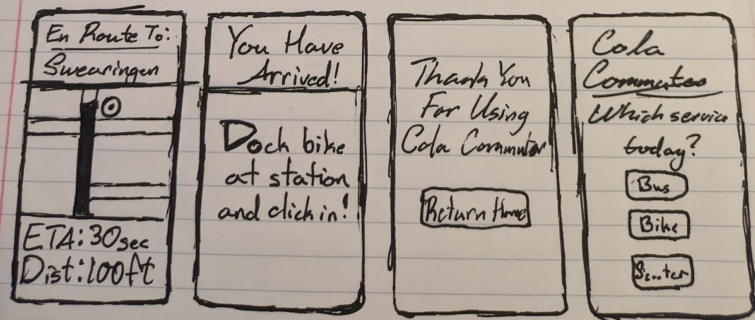 En Route To:
Swearingen
ETA: 30sec
Dist: 100ft
You Have
Arrived!
Dock bike
at station
and click in!
Thank You
For Using
Cola Commuter
Return Home
Cola
Commuter
Which service
today?
Bus
Bike
Scooter